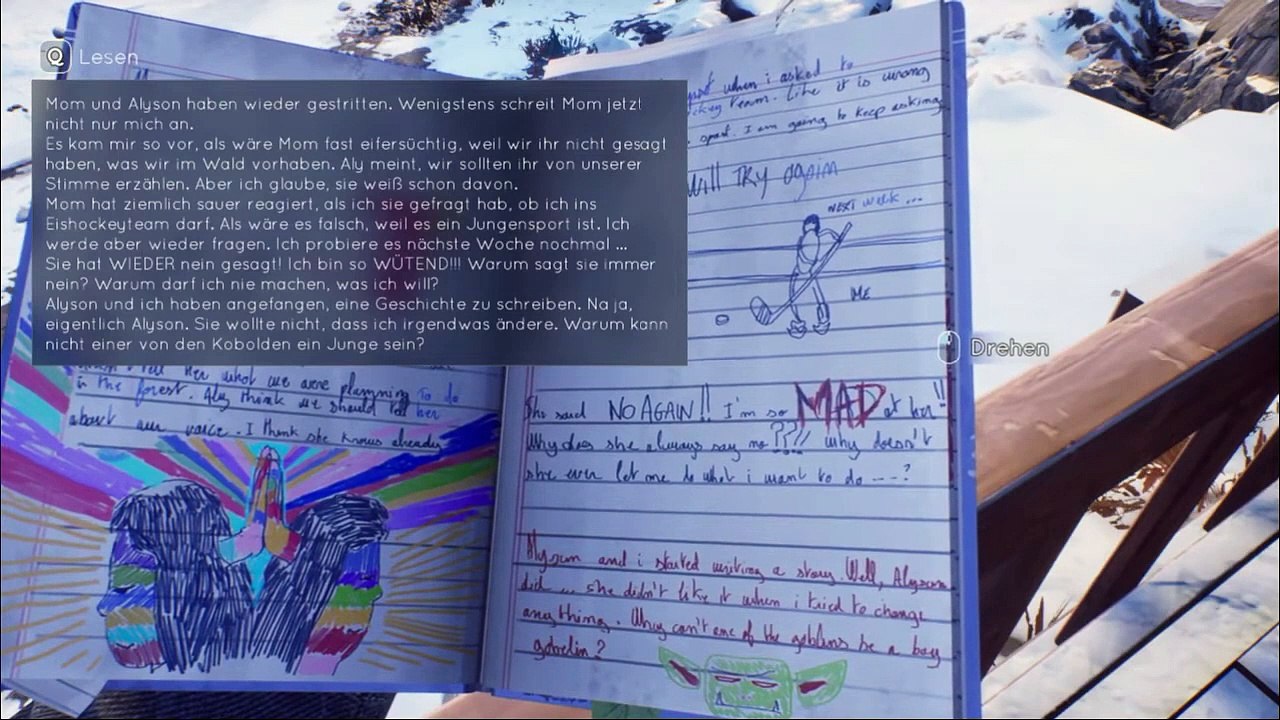 Lesen
Mom und Alyson haben wieder gestritten. Wenigstens schreit Mom jetzt
nicht nur mich an.
Es kam mir so vor, als wäre Mom fast eifersüchtig, weil wir ihr nicht gesagt
haben, was wir im Wald vorhaben. Aly meint, wir sollten ihr von unserer
Stimme erzählen. Aber ich glaube, sie weiß schon davon.
Mom hat ziemlich sauer reagiert, als ich sie gefragt hab, ob ich ins
Eishockeyteam darf. Als wäre es falsch, weil es ein Jungensport ist. Ich
werde aber wieder fragen. Ich probiere es nächste Woche nochmal ...
Sie hat WIEDER nein gesagt! Ich bin so WÜTEND!!! Warum sagt sie immer
nein? Warum darf ich nie machen, was ich will?
Alyson und ich haben angefangen, eine Geschichte zu schreiben. Na ja,
eigentlich Alyson. Sie wollte nicht, dass ich irgendwas ändere. Warum kann
nicht einer von den Kobolden ein Junge sein?
her what we are planning to do
in the forest. Aly think we should tell her
about our voice. I think she knows already
when i asked to
team. Like it is wrong
sport. I am going to keep asking
Will TRY again
NEXT week ...
ME
Drehen
She said NO AGAIN!! I'm so MAD at her!!
Why does she always say no ??!! why doesn't
she ever let me do what i want to do ---?
Alyson and i started writing a story. Well, Alyson
did ... she didn't like it when i tried to change
anything. Why can't one of the goblins be a boy
gobelin?